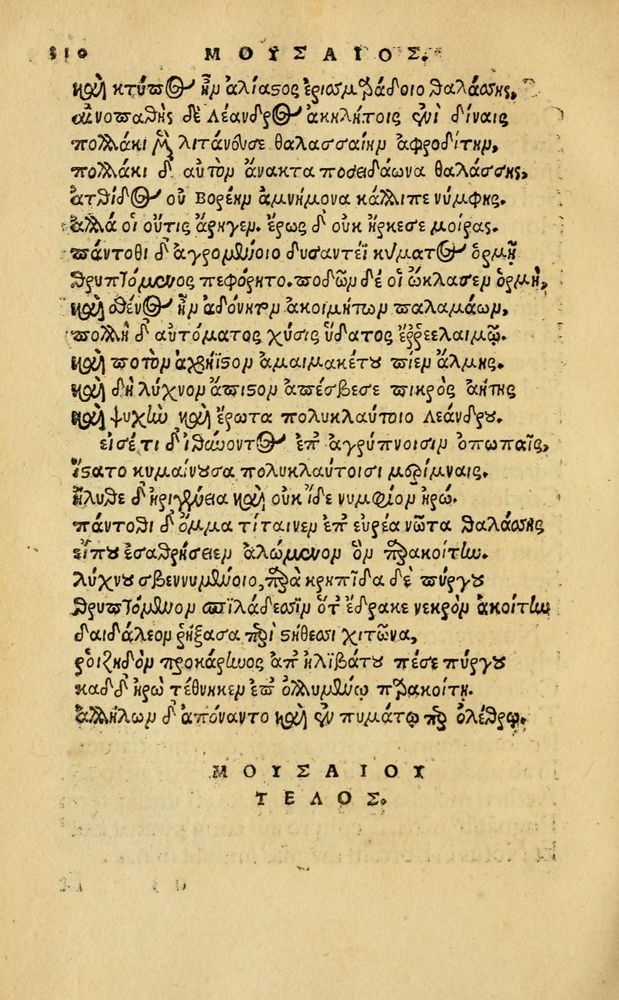 310 ΜΟΥΣΑΙΟΣ.
καὶ κτύπος ἦν ἀλίαστος ἐρισμαράδοιο θαλάσσης,
αἰνοπαθὴς δὲ Λέανδρος ἀκηλήτοις ἐνὶ δίναις
πολλάκι μὲν λιτάνουσε θαλασσαίην ἀφροδίτην,
πολλάκι δ αὐτὸν ἄνακτα ποσειδάωνα θαλάσσης,
ἀτθίδος οὐ Βορέην ἀμνήμονα κάλλιπε νύμφης.
ἀλλά οἱ οὔτις ἄρηγεν. ἔρως δ οὐκ ἤρκεσε μοίρας.
πάντοθι δ ἀγρομένοιο δυσαντέϊ κύματος ὁρμῇ
θρυπτόμενος πεφόρητο. ποδῶν δέ οἱ ὤκλασεν ὁρμή,
καὶ σθένος ἦν ἀδόνητον ἀκοιμήτων παλαμάων,
πολλὴ δ αὐτόματος χύσις ὕδατος ἔρρεε λαιμῷ.
καὶ ποτὸν ἀχρήϊστον ἀμαιμακέτου πίεν ἅλμης.
καὶ δὴ λύχνον ἄπιστον ἀπέσβεσε πικρὸς ἀήτης
καὶ ψυχὴν καὶ ἔρωτα πολυκλαύτοιο Λεάνδρου.
εἰσέτι δ ἰθύνοντος ἐπ ἀγρύπνοισιν ὀπωπαῖς,
ἵστατο κυμαίνουσα πολυκλαύτοισι μερίμναις.
ἤλυθε δ ἠριγένεια καὶ οὐκ ἴδε νυμφίον ἡρώ.
πάντοθι δ ὄμμα τίταινεν ἐπ εὐρέα νῶτα θαλάσσης
εἴπου ἐσαθρήσειεν ἀλώμενον ὃν παρακοίτην.
λύχνου σβεννυμένοιο, παρὰ κρηπῖδα δὲ πύργου
θρυπτόμενον σπιλάδεσσιν ὅτ ἔδρακε νεκρὸν ἀκοίτην
δαιδάλεον ῥήξασα περὶ στήθεσσι χιτῶνα,
ῥοιζηδὸν προκάρηνος ἀπ ἠλιβάτου πέσε πύργου
καδδ ἡρὼ τέθνηκεν ἐπ ὀλλυμένῳ παρακοίτῃ.
ἀλλήλων δ ἀπόναντο καὶ ἐν πυμάτῳ περ ὀλέθρῳ.
ΜΟΥΣΑΙΟΥ
ΤΕΛΟΣ.